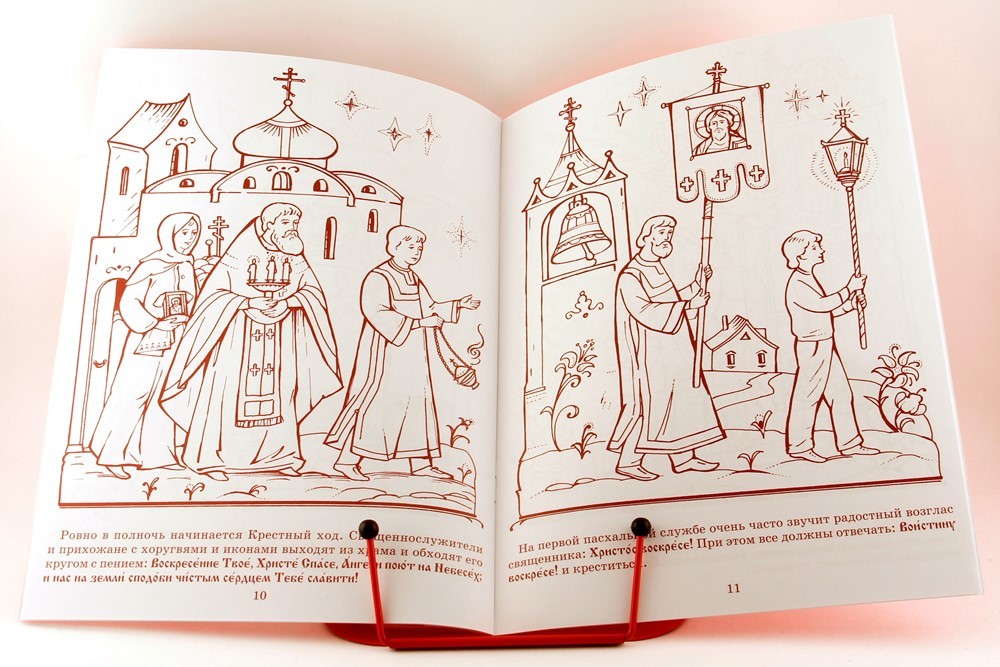 Ровно в полночь начинается Крестный ход. Священнослужители
и прихожане с хоругвями и иконами выходят из храма и обходят его
кругом с пением: Воскресе́ние Твое́, Христе́ Спа́се, А́нгели пою́т на Небесе́х;
и нас на земли́ сподо́би чи́стым се́рдцем Тебе́ сла́вити!
10
На первой пасхальной службе очень часто звучит радостный возглас
священника: Христо́с воскре́се! При этом все должны отвечать: Вои́стину
воскре́се! и креститься.
11